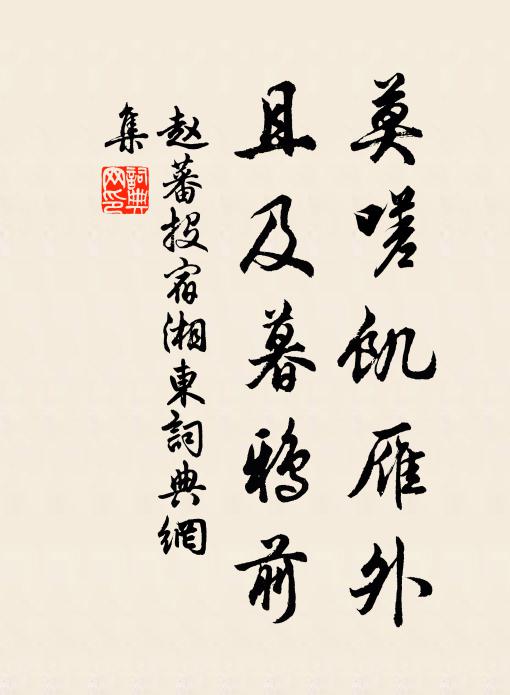 莫嗟飢雁外
且及暮鴉前
赵蕃投宿湘東詞典網
集
詞典網印